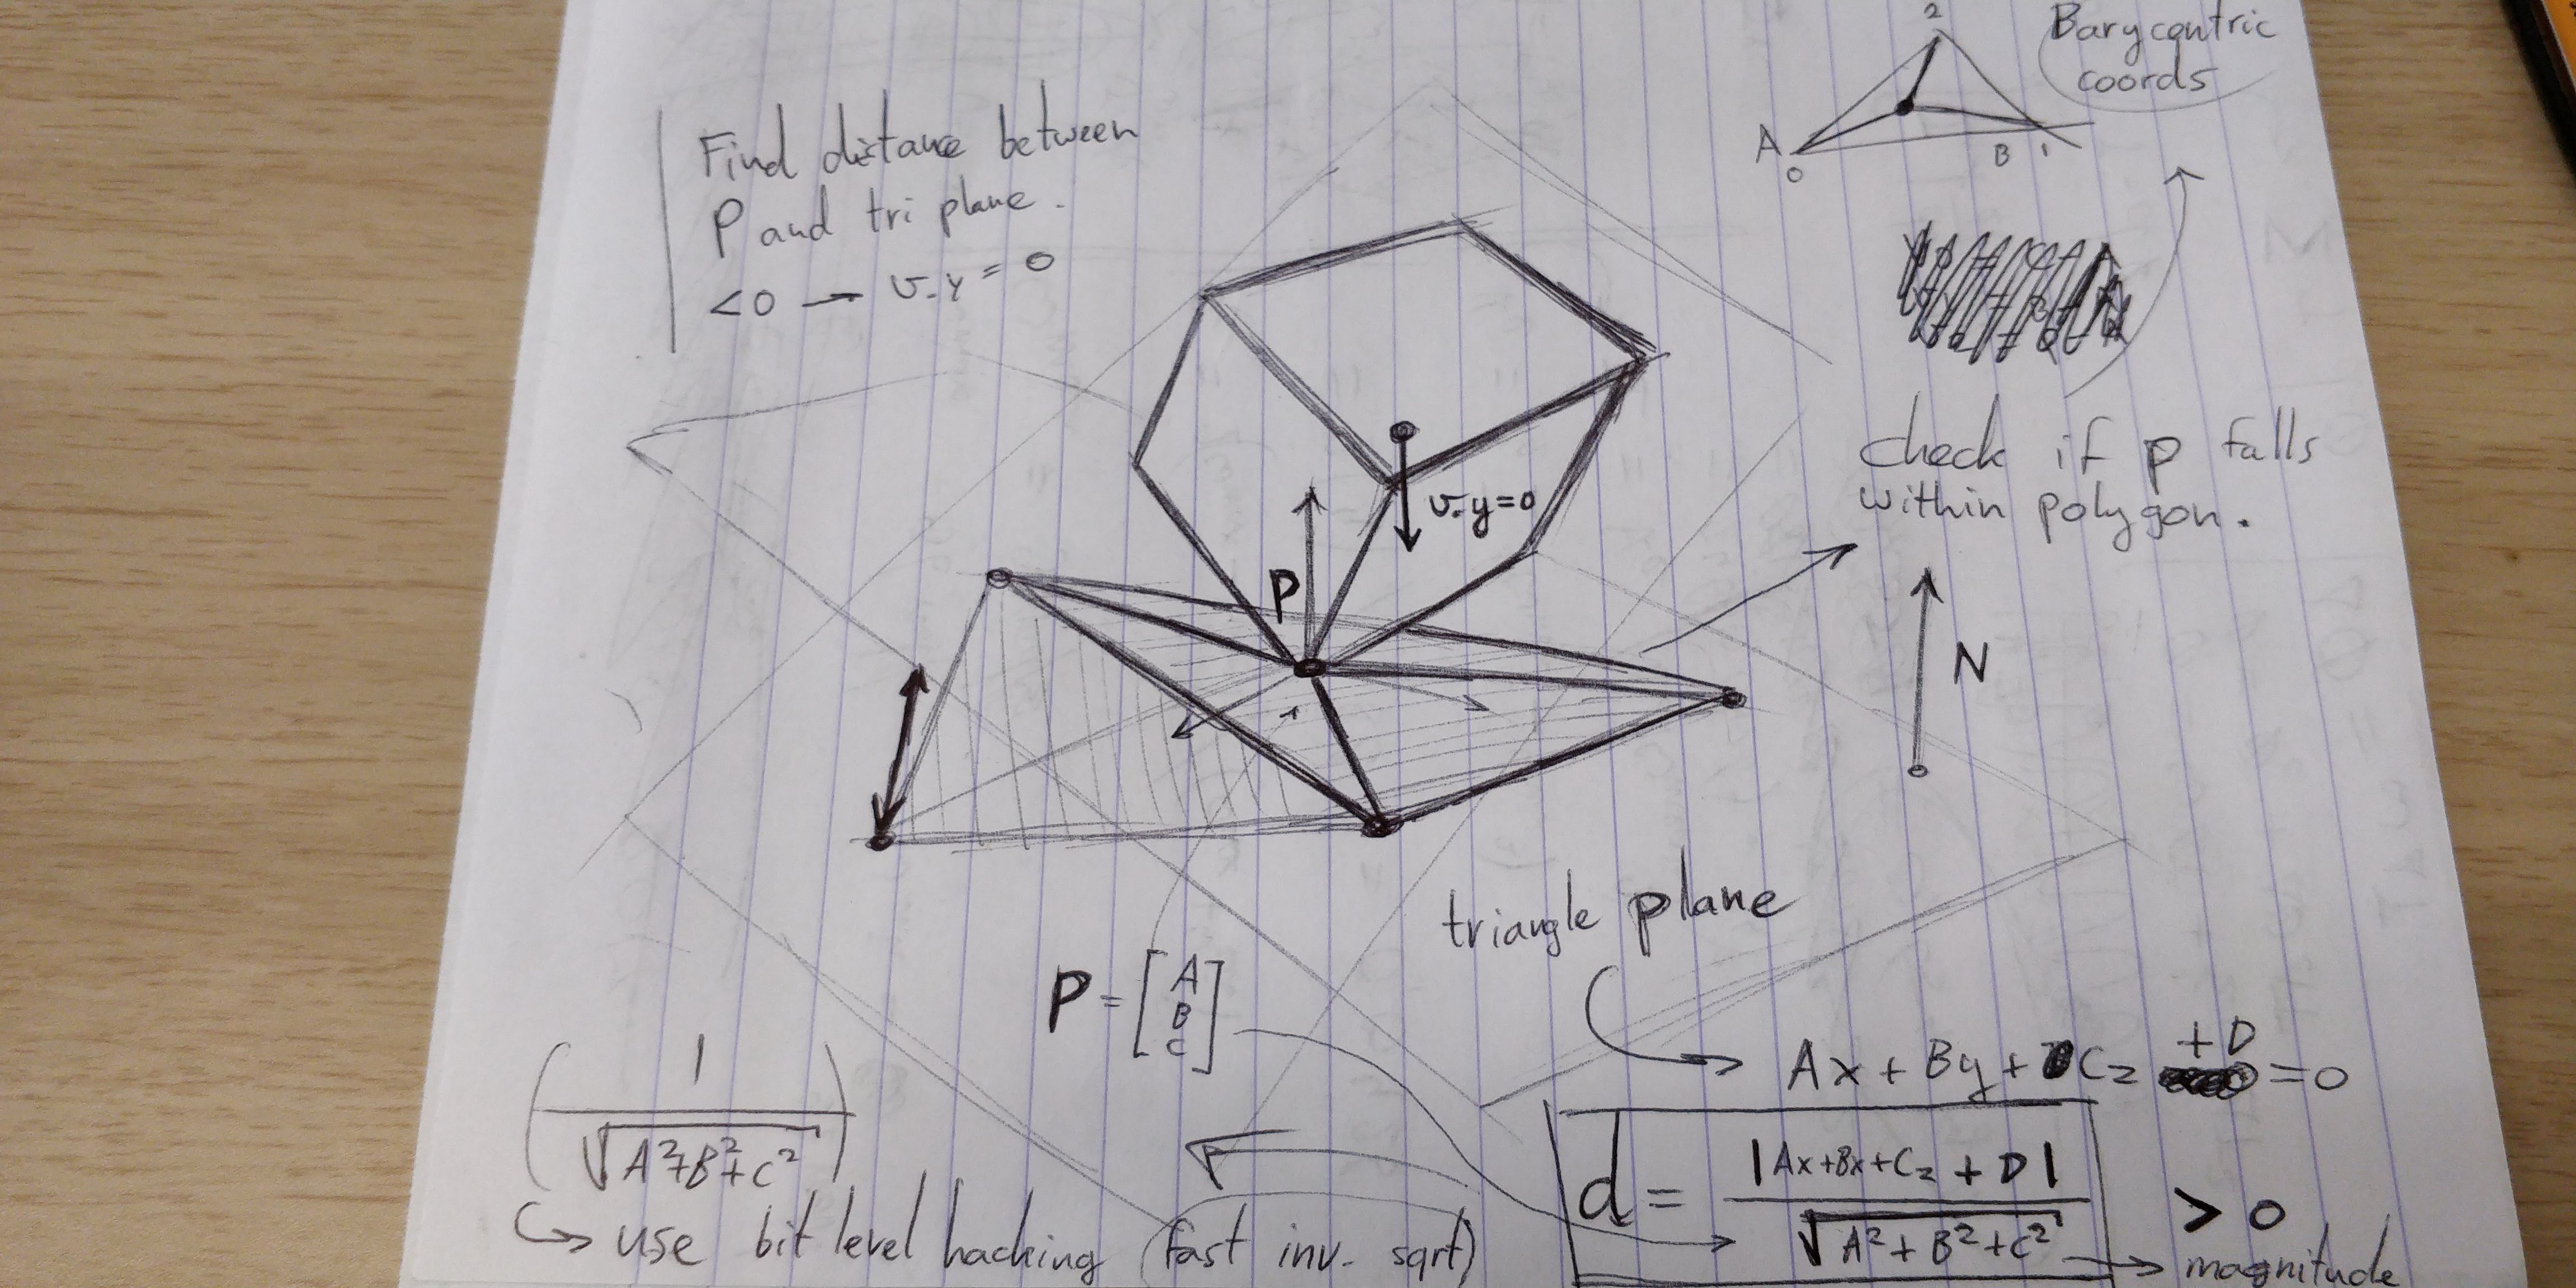 Find distance between
P and tri plane.
<0 → v.y = 0
2
A
0
B 1
Barycentric
coords
check if p falls
within polygon.
v.y=0
P
N
triangle plane
P = [A
B
C]
Ax + By + Cz + D = 0
d = |Ax+Bx+Cz + D| / √A²+B²+C² > 0
→ magnitude
(1 / √A²+B²+C²)
↳ use bit level hacking (fast inv. sqrt)